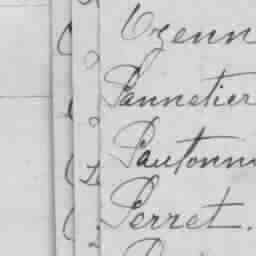 Ozenn
Pannetier
Pautonn
Perret.